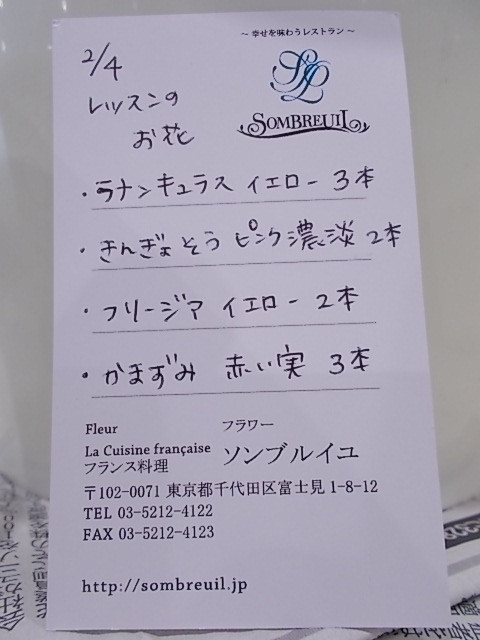 ～幸せを味わうレストラン～
SL
SOMBREUIL
2/4
レッスンの
お花
・ラナンキュラス イエロー 3本
・きんぎょそう ピンク濃淡 2本
・フリージア イエロー 2本
・かまずみ 赤い実 3本
Fleur フラワー
La Cuisine française
フランス料理 ソンブルイユ
〒102-0071 東京都千代田区富士見 1-8-12
TEL 03-5212-4122
FAX 03-5212-4123
http://sombreuil.jp